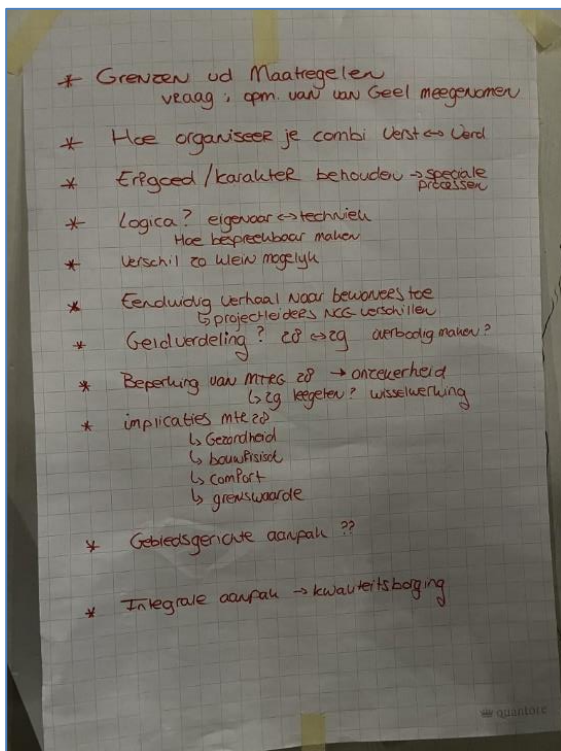 * Grenzen vd Maatregelen
vraag, opm. van van Geel meegenomen
* Hoe organiseer je combi Verst ↔ Verd
* Erfgoed / karakter behouden → speciale
processen
* Logica? eigenaar ↔ techniek
Hoe bespreekbaar maken
* Verschil zo klein mogelyk
* Eenduidig verhaal naar bewoners toe
↳ projectleiders NCG verschillen
* Geldverdeling? 28 ↔ 29 overbodig maken?
* Beperking van mtrg 28 → onzekerheid
↳ 29 regelen? wisselwerking
* implicaties mtr 28
↳ Gezondheid
↳ bouwfisisch
↳ comfort
↳ grenswaarde
* Gebiedsgerichte aanpak ??
* Integrale aanpak → kwaliteitsborging
quantore